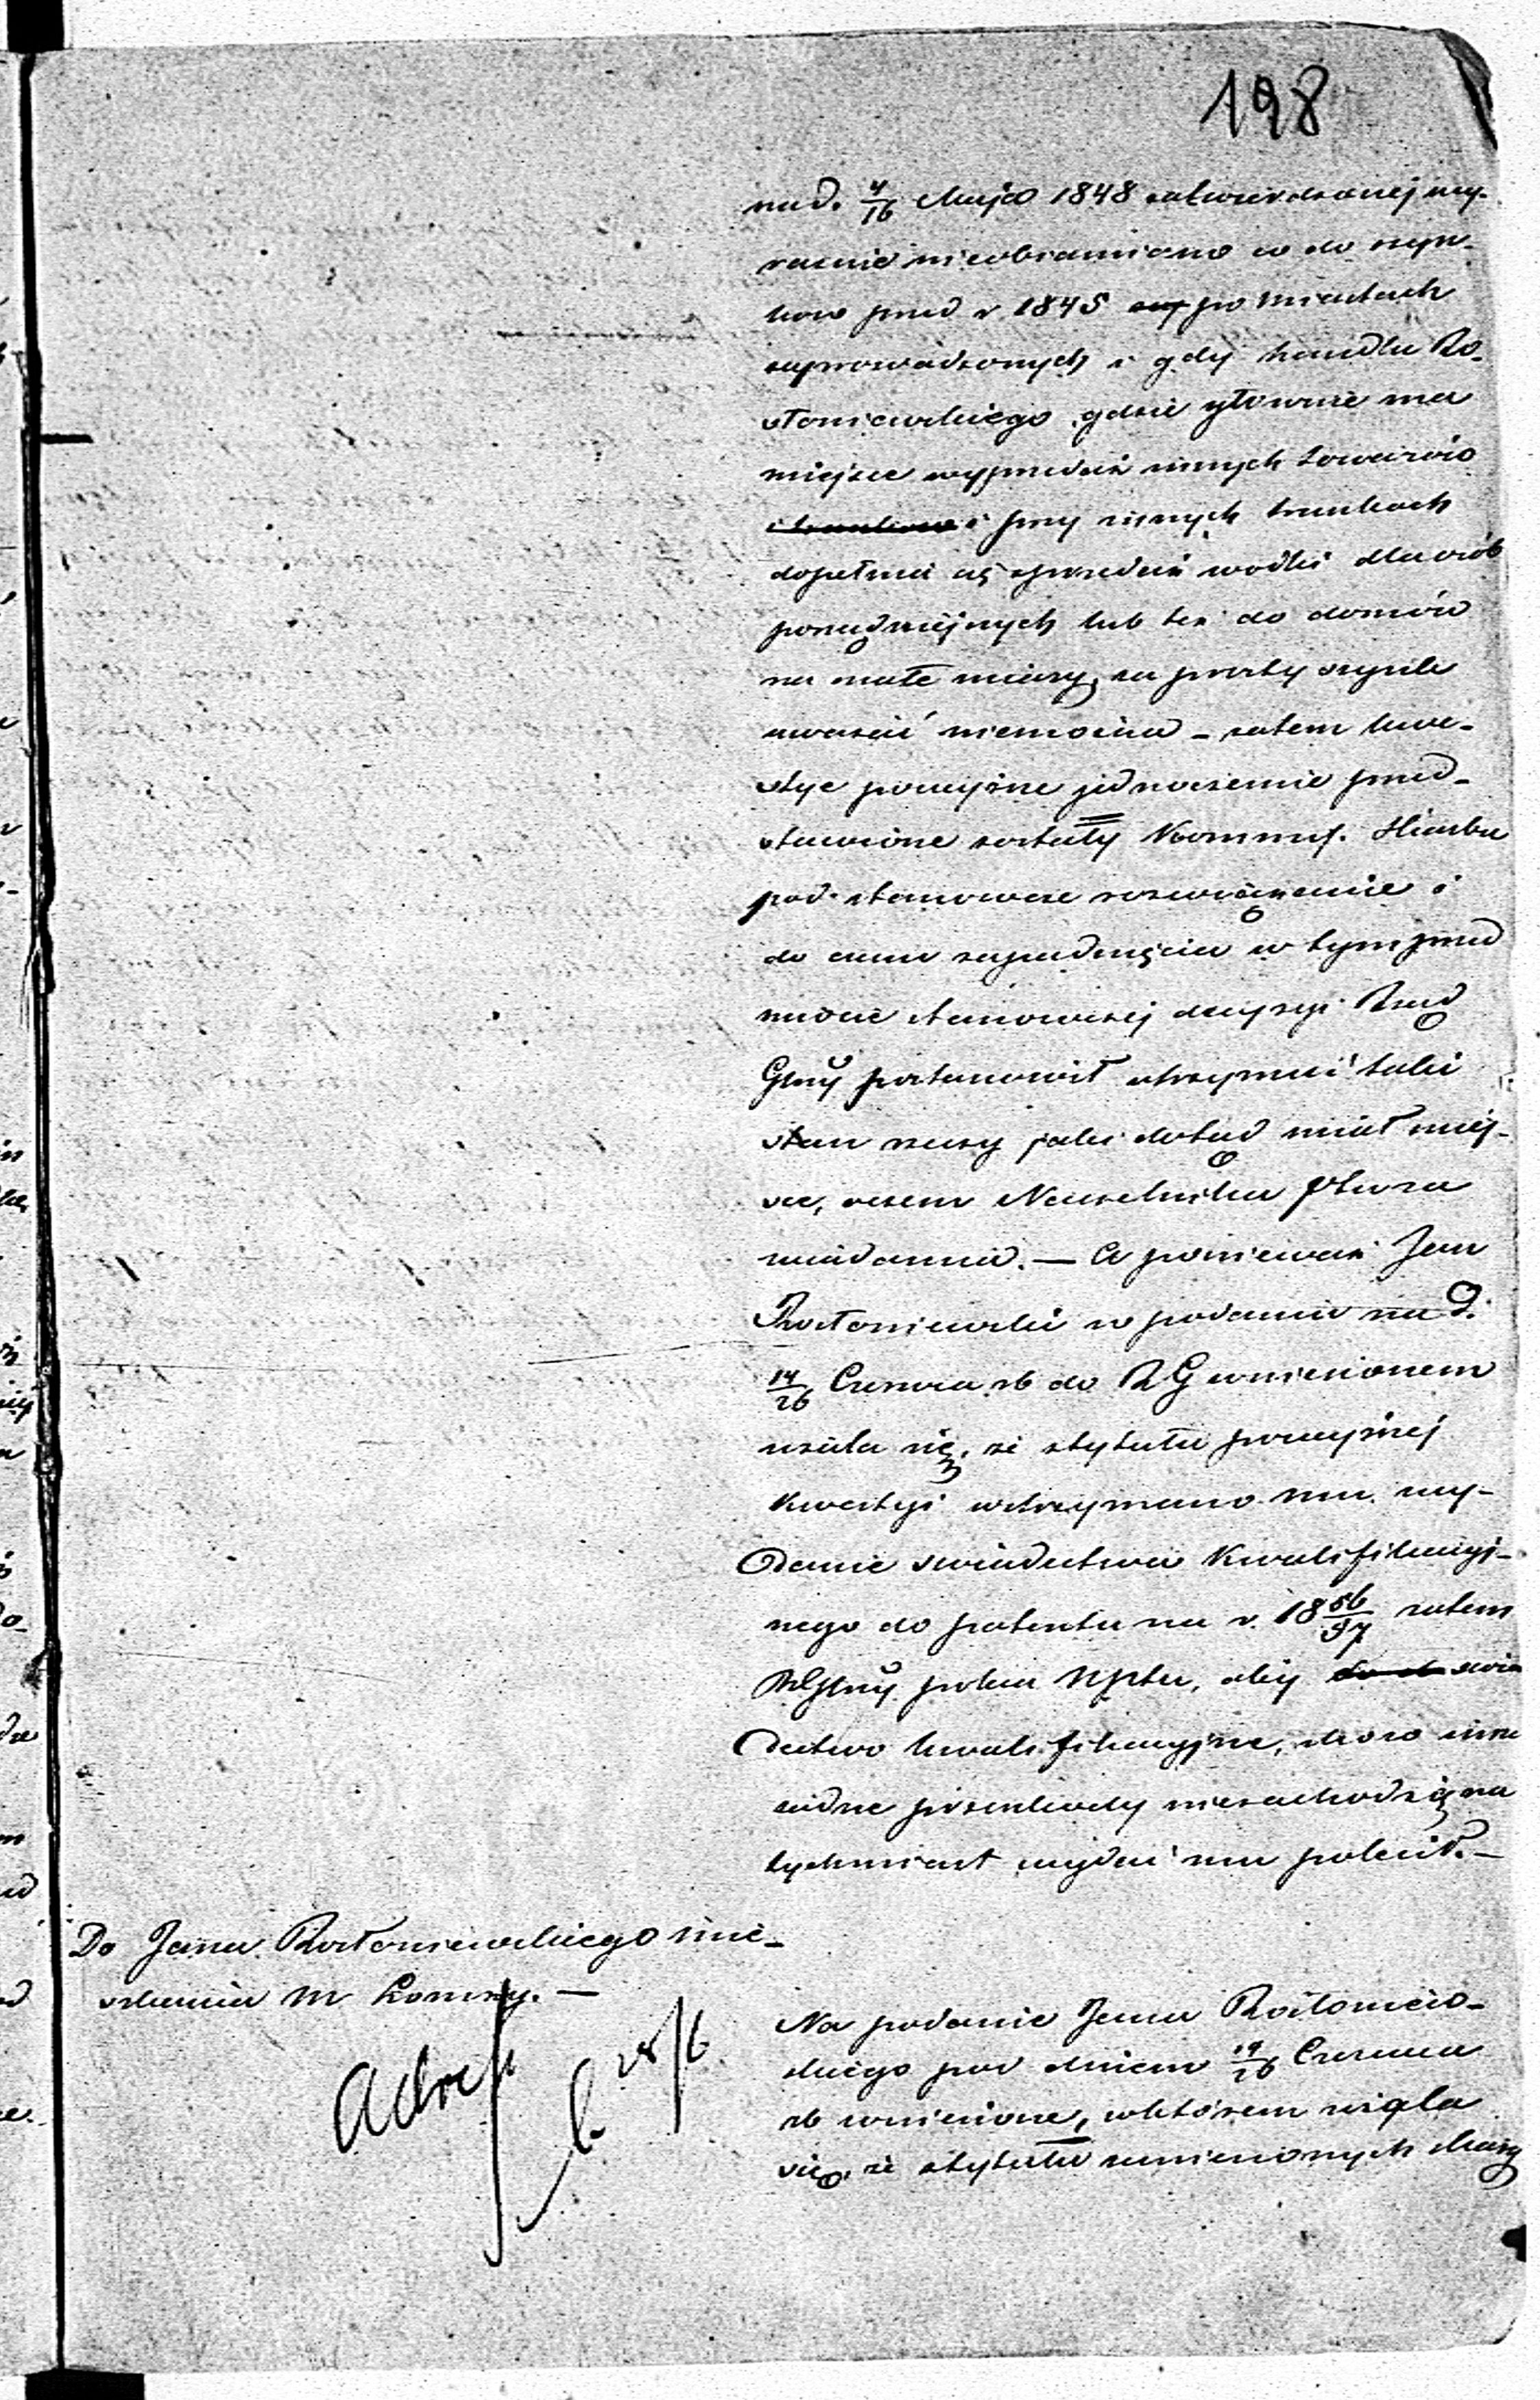 198
na d. 4/16 Maja 1848 zatwierdzonej wy-
raźnie nieobjaśniono co do szyn-
ków przed r 1845 po Miastach
zaprowadzonych i gdy handlu Ro-
stoniewskiego gdzie głównie ma
miejsce wyprzedaż innych towarów
i przy innych trunkach
dopełnia się sprzedaż wódki dla osób
porządniejszych lub też do domów
na małe miary, za prosty szynk
uważać niemożna – zatem kwe-
stye powyższe jednocześnie przed-
stawione zostały Kommss. Skarbu
pod stanowcze rozwiązanie i
do czasu zapadnięcia w tym przed
miocie stanowczej decyzyi Rząd
Gbny postanowił utrzymać taki
stan rzeczy jaki dotąd miał miej-
sce, oczem Naczelnika Ptu za
wiadamia. — A ponieważ Jan
Rostoniewski w podaniu na d.
14/26 Czerwca rb do RG wniesionem
użala się, że z tytułu powyższej
Kwestyi wstrzymano mu wy-
danie świadectwa Kwalifikacyj-
nego do patentu na r. 18 56/57 zatem
RGbny poleca NPtu, aby świa
dectwo kwalifikacyjne, skoro inne
żadne przeszkody niezachodzą na
tychmiast wydać mu polecił. –
Do Jana Rostoniewskiego mie-
szkańca m Łomży. —
Adress
28/6
Na podanie Jana Rostoniew-
skiego pod dniem 14/26 Czerwca
rb wniesione, w którem użala
się, że z tytułu zamienionych